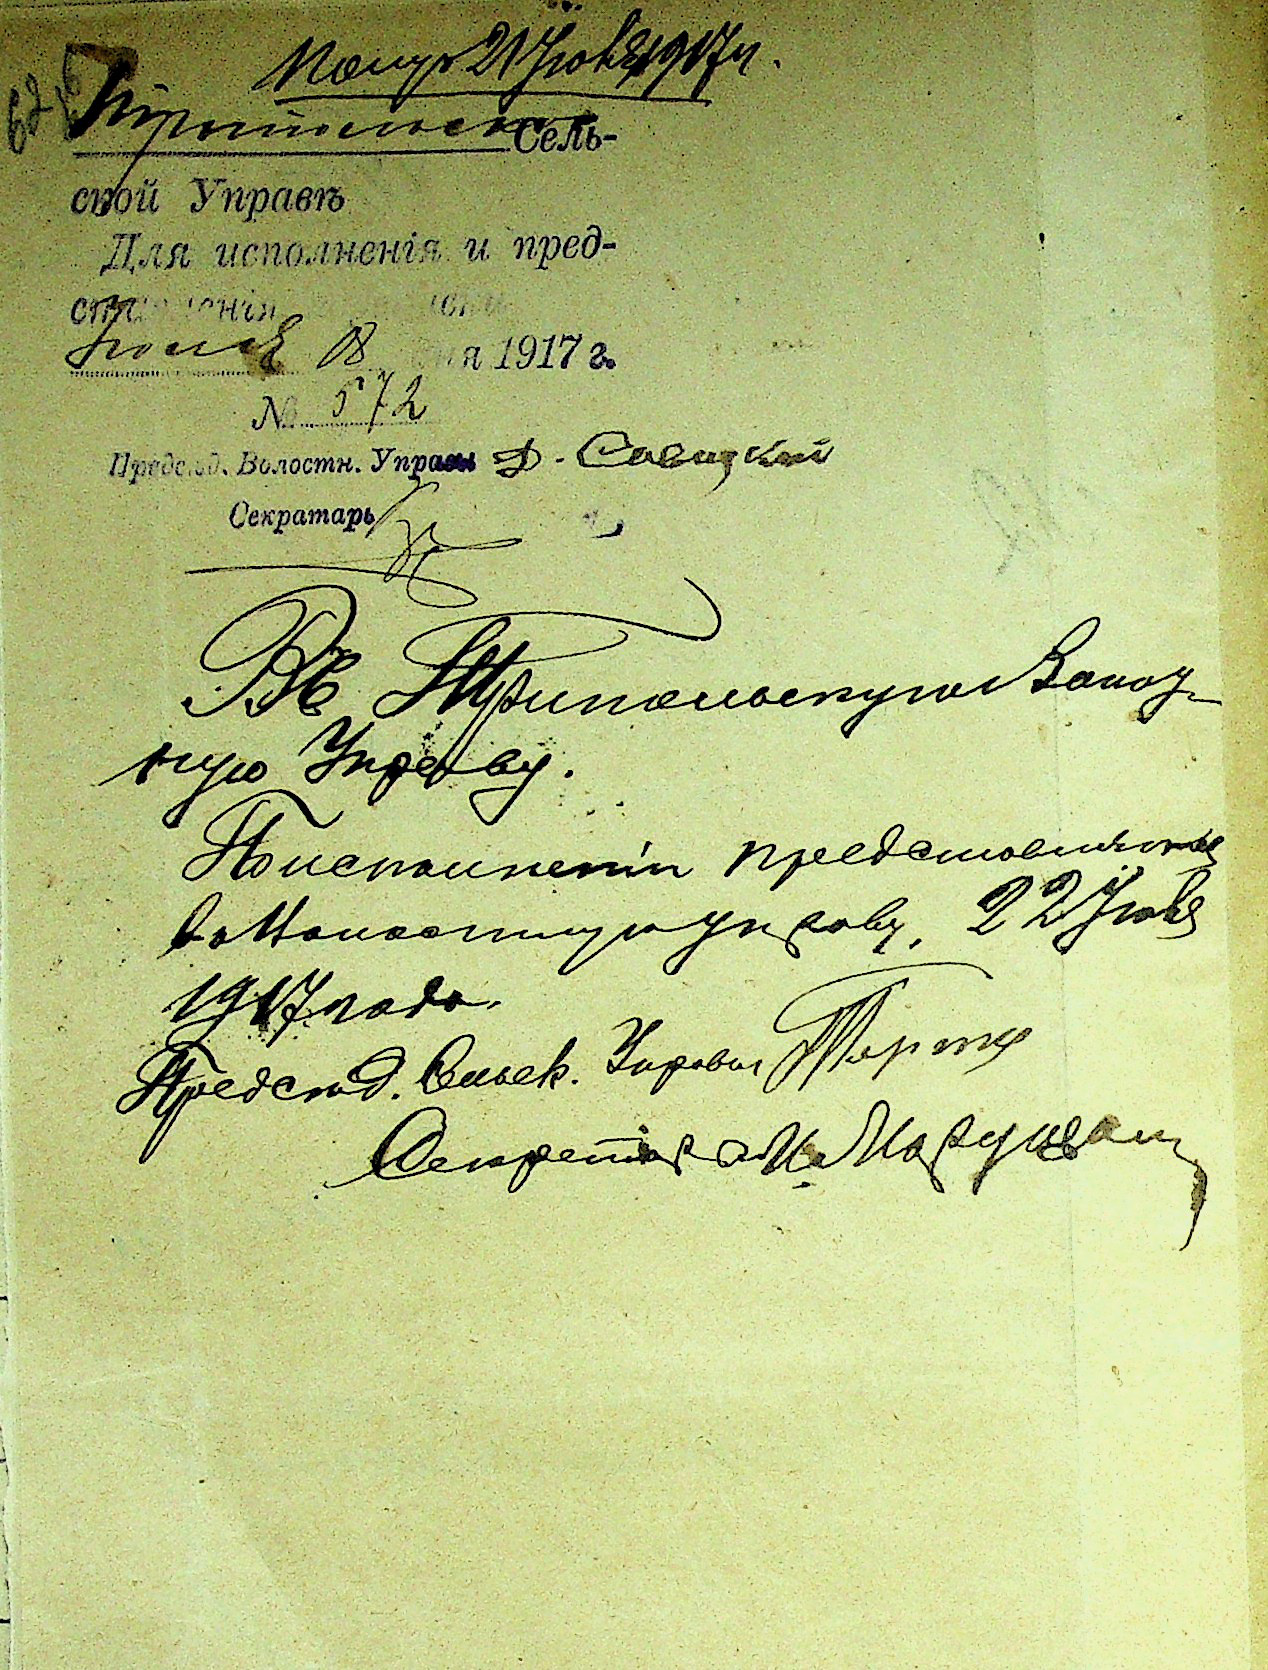 Получ 21 Іюня 1917 г.
Трипольской Сель-
ской Управѣ
Для исполненія и пред-
ставленія
Іюня 18 1917 г.
№ 572
Предсѣд. Волостн. Управы Д. Савицкий
Секратарь
Въ Трипольскую Волост-
ную Управу.
По исполненіи представляется
в Волостную управу, 22 Іюня
1917 года.
Председ. Сельск. Управы
Секретарь